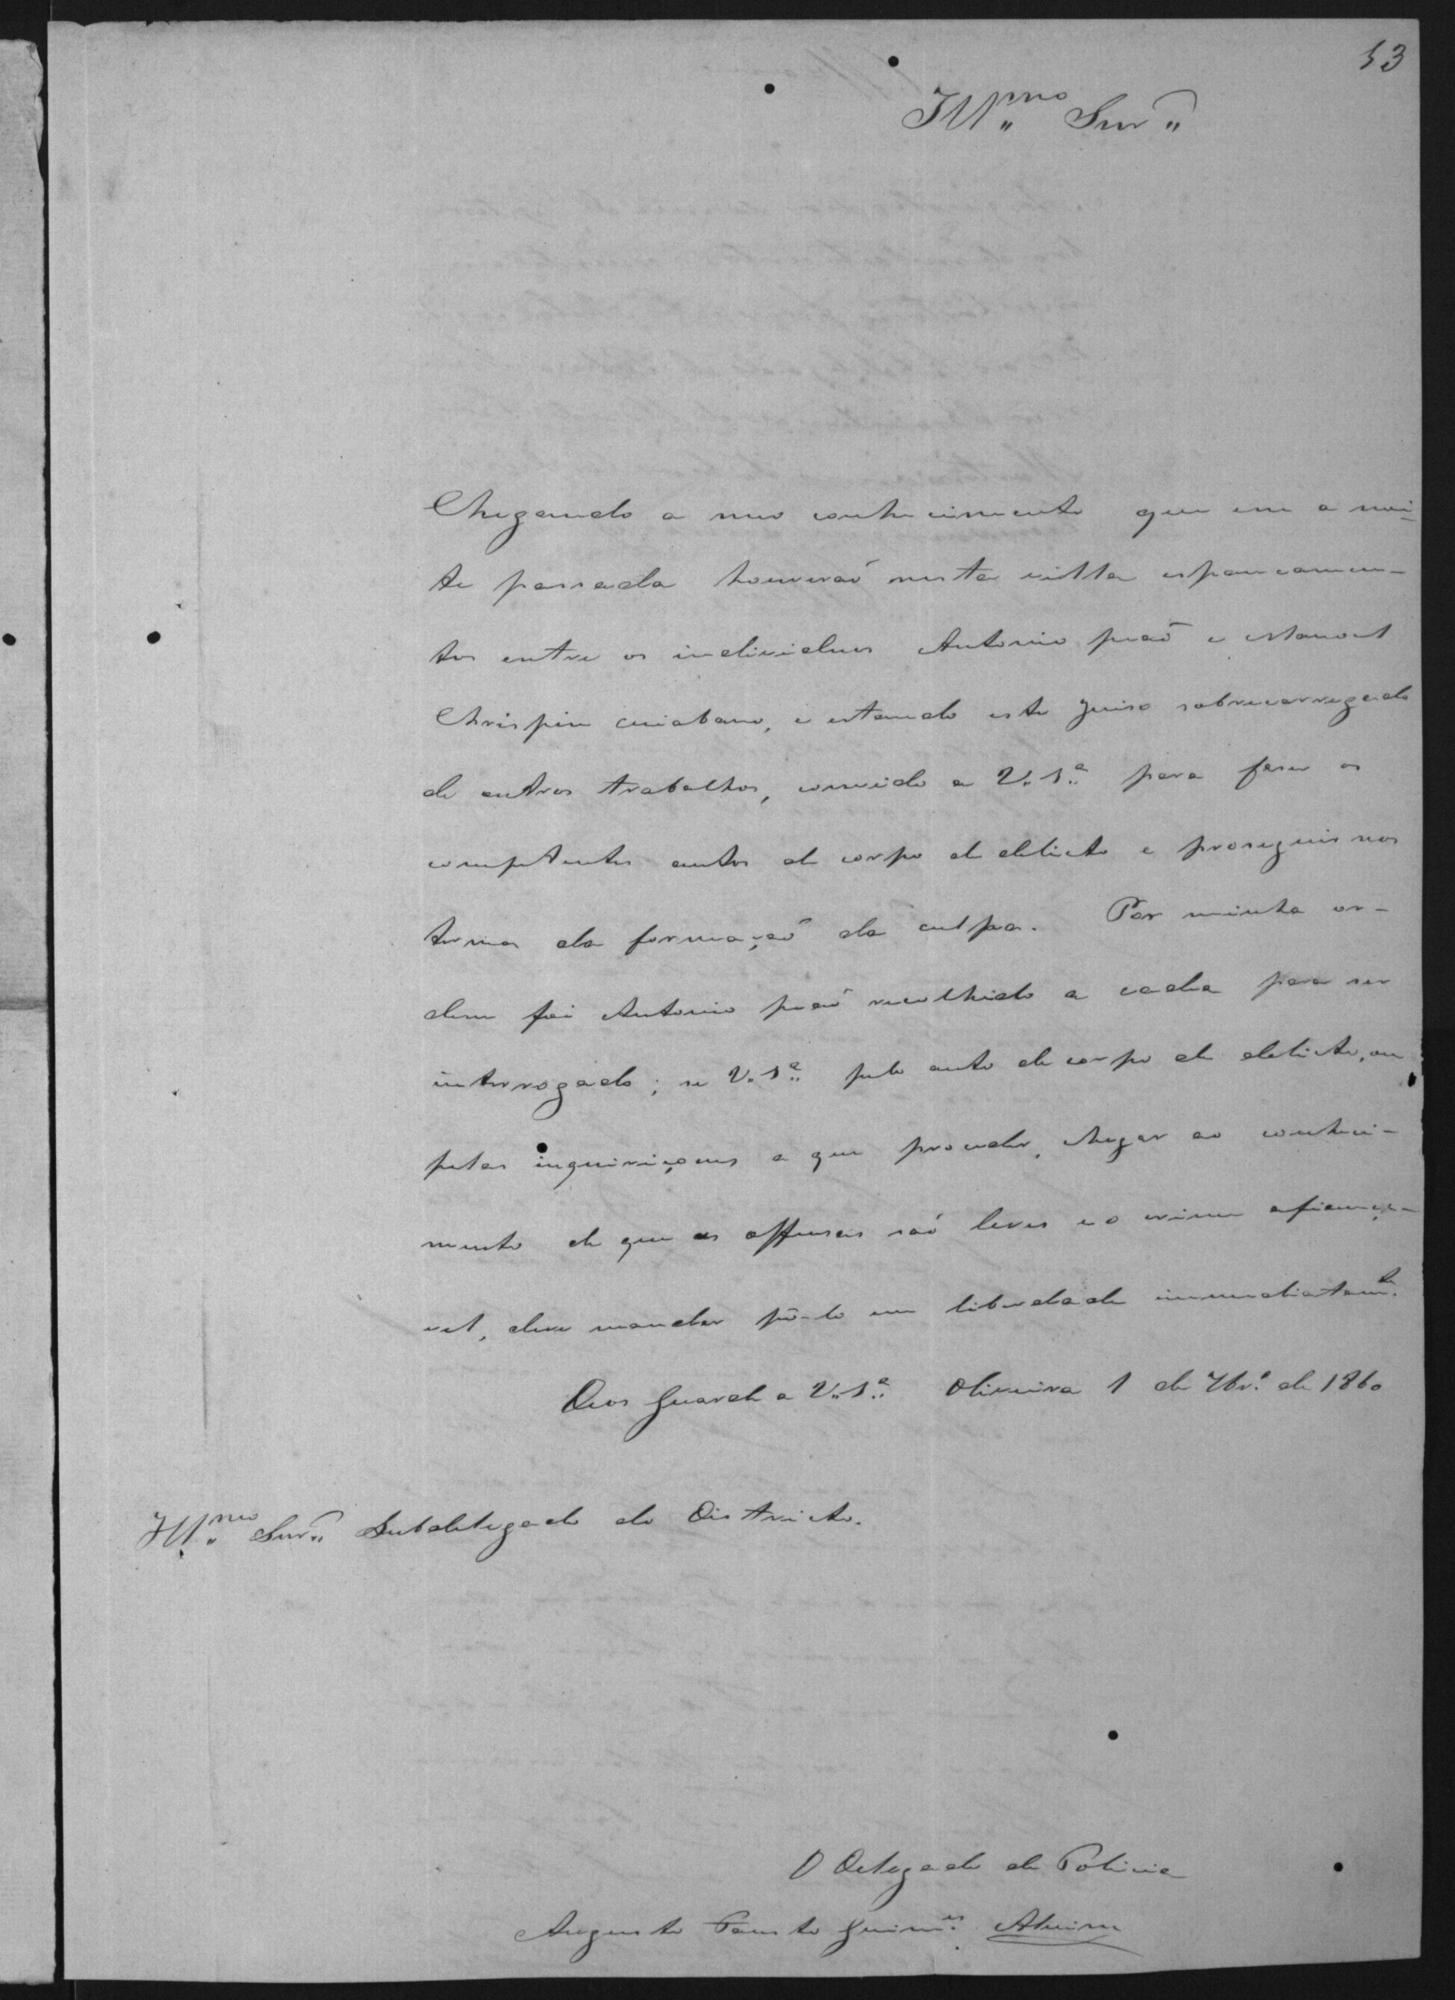 53
Ill.mo Snr.
Chegando a meo conhecimento que em a noi-
te passada houverão nesta villa espancamen-
tos entre os individuos Antonio peão e Manoel
Chrispim cuiabano, e estando este Juiso sobrecarregado
de outros trabalhos, convido a V. S.ª para faser os
competentes autos de corpo de delicto e proseguir nos
termos da formação da culpa. Por minha or-
dem foi Antonio peão recolhido a cadea para ser
interrogado; se V. S.ª pelo auto de corpo de delicto, ou
pelas inquiriçoens a que proceder, chegar ao conheci-
mento de que as offensas são leves e o crime afiança-
vel, deve mandar pô-lo em liberdade immediatam.te
Deos Guarde a V. S.ª Oliveira 1 de 7br.º de 1860
Ill.mo Snr. Subdelegado do Districto.
O Delegado de Policia
Augusto Fausto Guim.es Alvim